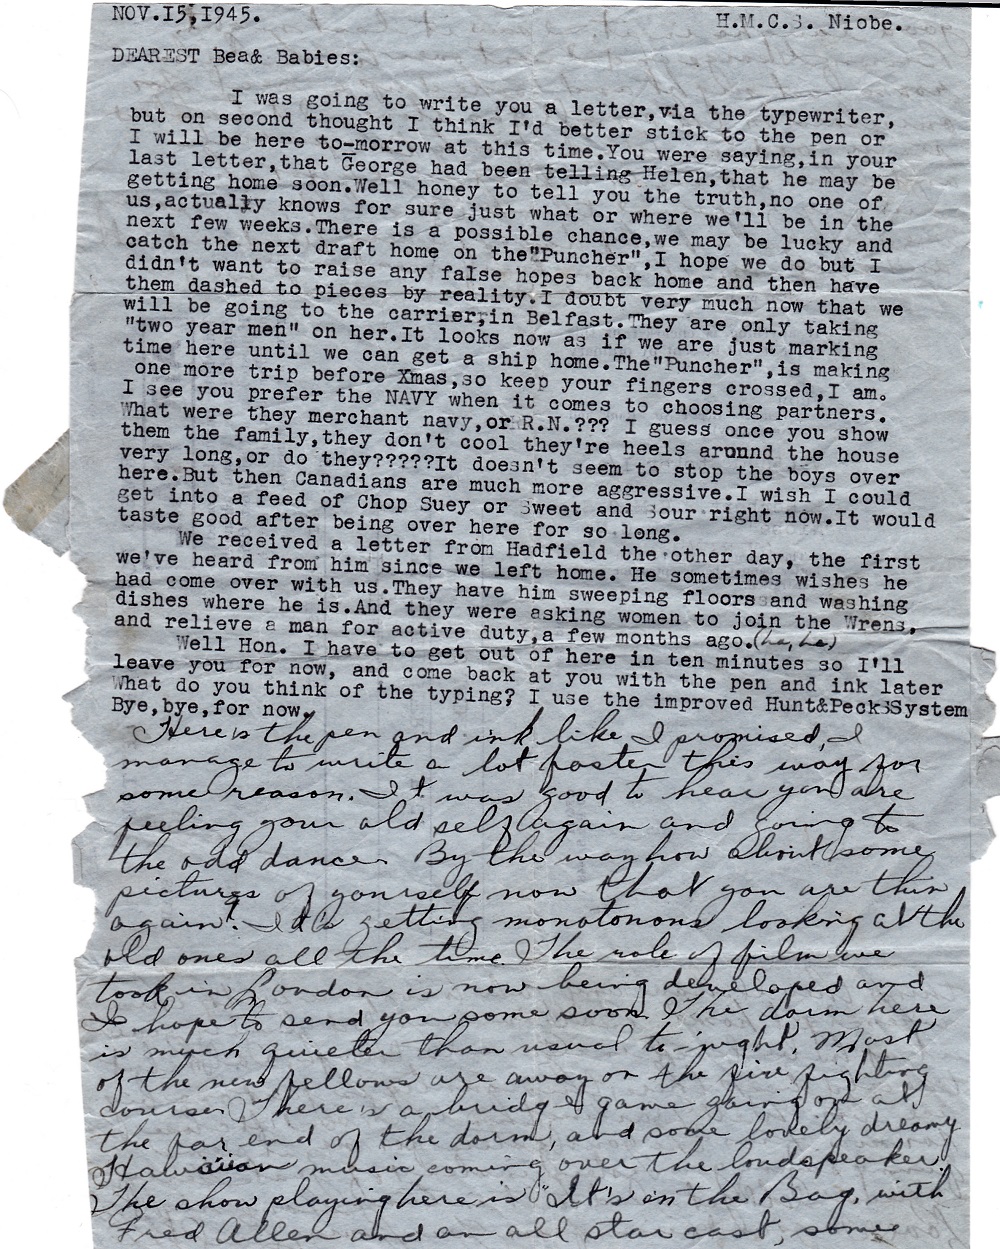 NOV.15,1945.
H.M.C.S. Niobe.
DEAREST Bea& Babies:
I was going to write you a letter,via the typewriter,
but on second thought I think I'd better stick to the pen or
I will be here to-morrow at this time.You were saying,in your
last letter,that George had been telling Helen,that he may be
getting home soon.Well honey to tell you the truth,no one of
us,actually knows for sure just what or where we'll be in the
next few weeks.There is a possible chance,we may be lucky and
catch the next draft home on the"Puncher",I hope we do but I
didn't want to raise any false hopes back home and then have
them dashed to pieces by reality.I doubt very much now that we
will be going to the carrier,in Belfast.They are only taking
"two year men" on her.It looks now as if we are just marking
time here until we can get a ship home.The"Puncher",is making
one more trip before Xmas,so keep your fingers crossed,I am.
I see you prefer the NAVY when it comes to choosing partners.
What were they merchant navy,or R.N.??? I guess once you show
them the family,they don't cool they're heels arunnd the house
very long,or do they?????It doesn't seem to stop the boys over
here.But then Canadians are much more aggressive.I wish I could
get into a feed of Chop Suey or Sweet and Sour right now.It would
taste good after being over here for so long.
We received a letter from Hadfield the other day, the first
we've heard from him since we left home. He sometimes wishes he
had come over with us.They have him sweeping floors and washing
dishes where he is.And they were asking women to join the Wrens,
and relieve a man for active duty,a few months ago.(ha, ha)
Well Hon. I have to get out of here in ten minutes so I'll
leave you for now, and come back at you with the pen and ink later
What do you think of the typing? I use the improved Hunt&PecksSystem
Bye,bye,for now.
Here is the pen and ink like I promised, I
manage to write a lot faster this way for
some reason. It was good to hear you are
feeling your old self again and going to
the odd dance. By the way how about some
pictures of yourself now that you are thin
again? It's getting monotonous looking at the
old ones all the time. The role of film we
took in London is now being developed and
I hope to send you some soon. The dorm here
is much quieter than usual to-night. Most
of the new fellows are away on the fire fighting
course. There is a bridge game going on at
the far end of the dorm, and some lovely dreamy
Hawaiian music coming over the loudspeaker.
The show playing here is "It's in the Bag, with
Fred Allen and an all star cast, some